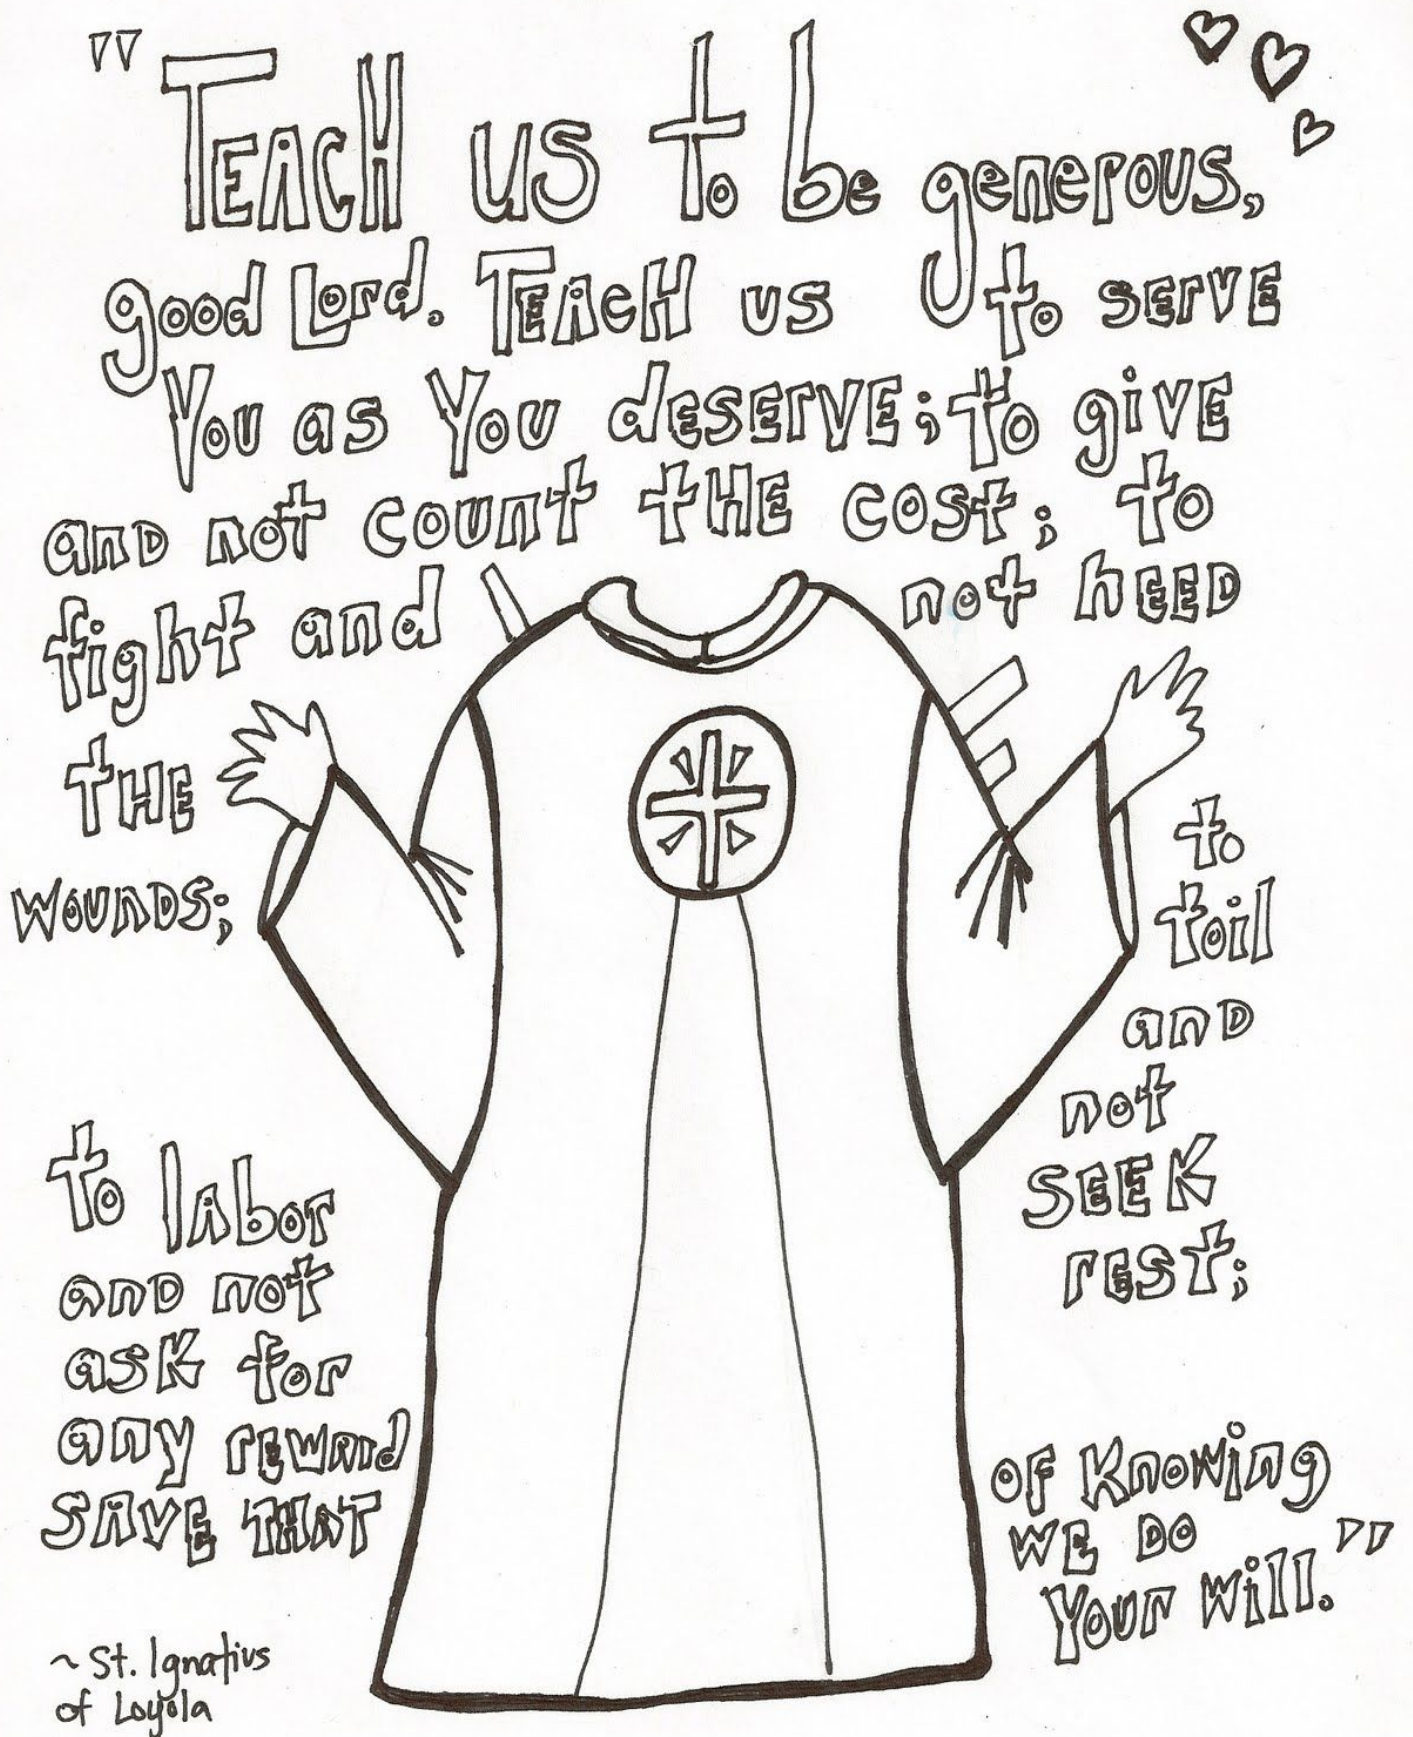 "Teach us to be generous,
good Lord. Teach us to serve
You as You deserve; to give
and not count the cost; to
fight and not heed
the
wounds;
to
toil
and
not
seek
rest;
to labor
and not
ask for
any reward
save that
of knowing
we do
Your will."
~ St. Ignatius
of Loyola